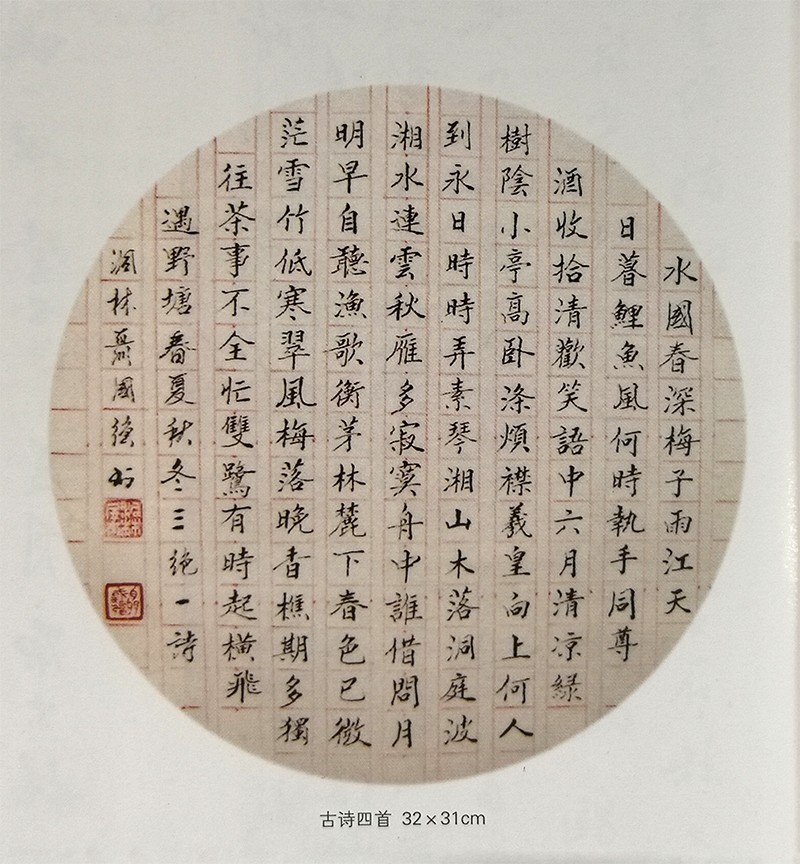 水國春深梅子雨江天
日暮鯉魚風何時執手同尊
酒收拾清歡笑語中六月清凉緑
樹陰小亭高卧滌煩襟羲皇向上何人
到永日時時弄素琴湘山木落洞庭波
湘水連雲秋雁多寂寞舟中誰借問月
明早自聽漁歌衡茅林麓下春色已微
茫雪竹低寒翠風梅落晚香樵期多獨
往茶事不全忙雙鷺有時起橫飛
遇野塘春夏秋冬三絶一詩
林聶國強书
古诗四首 32×31cm